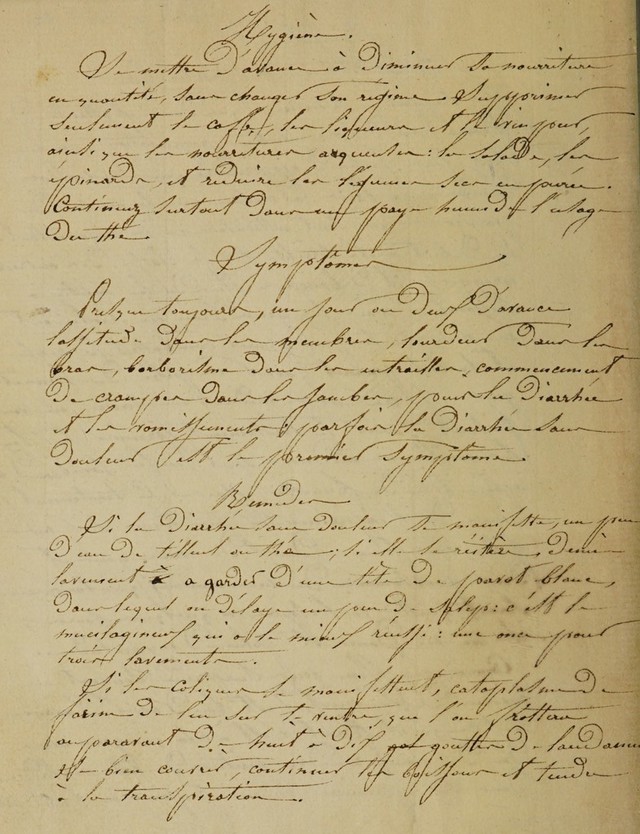 Hygiène.
Se mettre d'avance à diminuer sa nourriture
en quantité, sans changer son régime. Supprimer
seulement le café, les liqueurs et le vin pur,
ainsi que les nourritures aqueuses : la salade, les
épinards, et réduire les légumes secs en purée.
Continuez surtout dans un pays humide l'usage
du thé.
Symptômes
Presque toujours, un jour ou deux d'avance
lassitude dans les membres, lourdeur dans les
bras, borborisme dans les entrailles, commencement
de crampes dans les jambes, puis la diarrhée
et les vomissements ; parfois la diarrhée sans
douleur est le premier symptome.
Remèdes
Si la diarrhée sans douleur se manifeste, un peu
d'eau de tilleul ou thé ; si elle se réitère, demi-
lavement a garder d'une tête de pavot blanc,
dans lequel on délaye un peu de salep : c'est le
mucilagineux qui a le mieux réussi : une once pour
trois lavements.
Si les coliques se manifestent, cataplasme de
farine de lin sur le ventre, que l'on frottera
auparavant de huit à dix gouttes de laudanum
bien couvrir, continuer les boissons et tendre
à la transpiration.